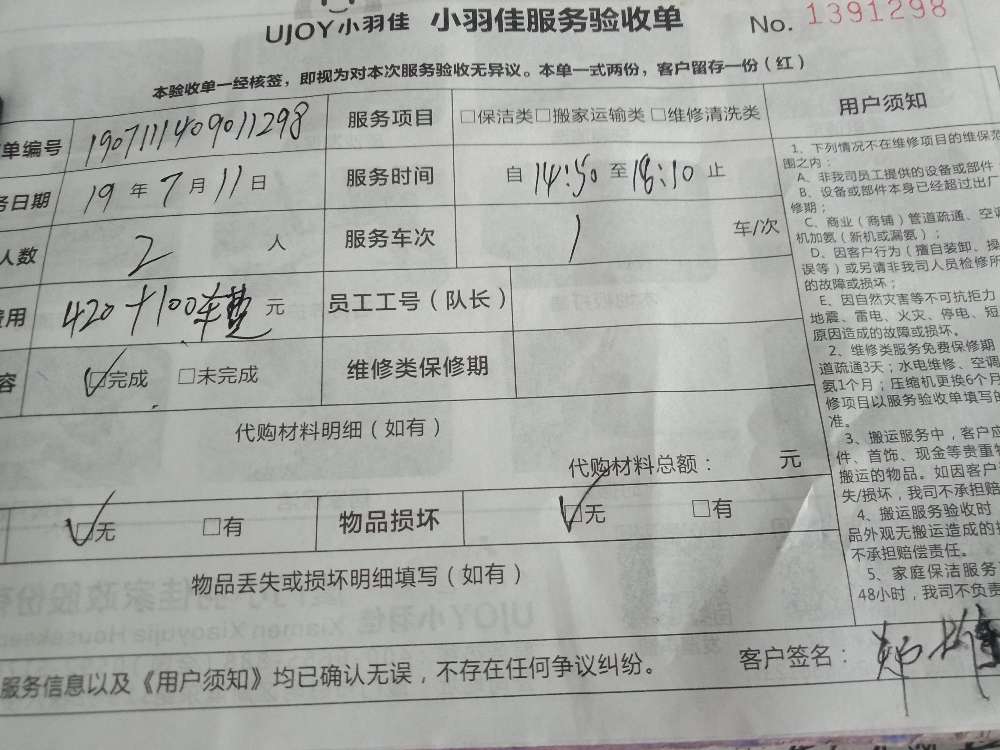 UJOY小羽佳 小羽佳服务验收单 No. 1391298
本验收单一经核签，即视为对本次服务验收无异议。本单一式两份，客户留存一份（红）
单编号 1907111409011298 服务项目 □保洁类□搬家运输类 □维修清洗类
务日期 19 年 7 月 11 日 服务时间 自 14:50 至 18:10 止
人数 2 人 服务车次 1 车/次
费用 420+100车费 元 员工工号（队长）
容 □完成 □未完成 维修类保修期
代购材料明细（如有）
代购材料总额： 元
□无 □有 物品损坏 □无 □有
物品丢失或损坏明细填写（如有）
服务信息以及《用户须知》均已确认无误，不存在任何争议纠纷。 客户签名：
用户须知
1、下列情况不在维修项目的维保范
围之内：
A、非我司员工提供的设备或部件
B、设备或部件本身已经超过出厂
修期；
C、商业（商铺）管道疏通、空调
机加氨（新机或漏氨）；
D、因客户行为（擅自装卸、操
误等）或另请非我司人员检修所
的故障或损坏；
E、因自然灾害等不可抗拒力
地震、雷电、火灾、停电、短
原因造成的故障或损坏。
2、维修类服务免费保修期
道疏通3天；水电维修、空调
氨1个月；压缩机更换6个月
修项目以服务验收单填写的
准。
3、搬运服务中，客户应
件、首饰、现金等贵重物
搬运的物品。如因客户
失/损坏，我司不承担赔
4、搬运服务验收时
品外观无搬运造成的损
不承担赔偿责任。
5、家庭保洁服务
48小时，我司不负责